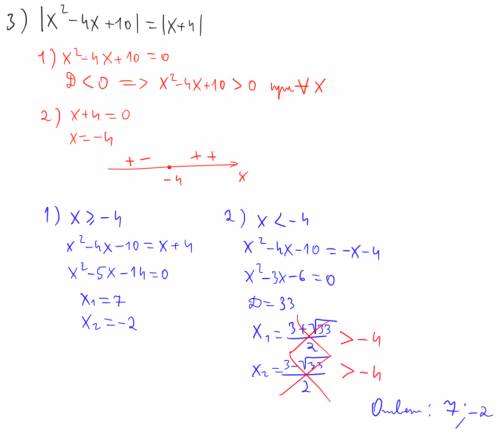 3) |x²-4x+10|=|x+4|
1) x²-4x+10=0
D<0 => x²-4x+10>0 при ∀ x
2) x+4=0
x=-4
+ - + +
-4 x
1) x ≥ -4
x²-4x-10=x+4
x²-5x-14=0
x₁=7
x₂=-2
2) x<-4
x²-4x-10=-x-4
x²-3x-6=0
D=33
x₁=(3+√33)/2 >-4
x₂=(3-√33)/2 >-4
Ответ: 7; -2